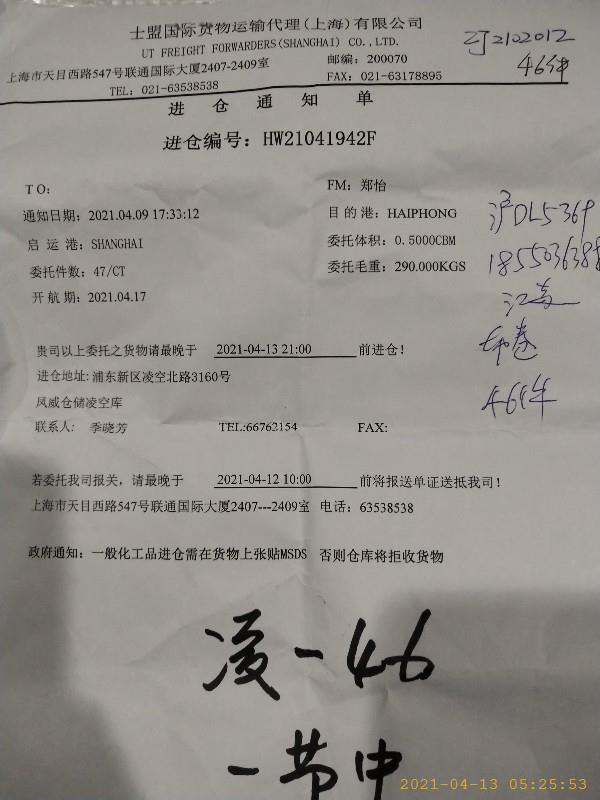 士盟国际货物运输代理(上海)有限公司
UT FREIGHT FORWARDERS(SHANGHAI) CO.,LTD.
上海市天目西路547号联通国际大厦2407-2409室 邮编: 200070
TEL: 021-63538538 FAX: 021-63178895
2102012
46件
进 仓 通 知 单
进仓编号: HW21041942F
TO: FM: 郑怡
通知日期: 2021.04.09 17:33:12 目 的 港: HAIPHONG
启 运 港: SHANGHAI 委托体积: 0.5000CBM
委托件数: 47/CT 委托毛重: 290.000KGS
开 航 期: 2021.04.17
沪DL5369
46件
贵司以上委托之货物请最晚于 2021-04-13 21:00 前进仓!
进仓地址: 浦东新区凌空北路3160号
风威仓储凌空库
联系人: 季晓芳 TEL:66762154 FAX:
若委托我司报关, 请最晚于 2021-04-12 10:00 前将报送单证送抵我司!
上海市天目西路547号联通国际大厦2407---2409室 电话: 63538538
政府通知: 一般化工品进仓需在货物上张贴MSDS 否则仓库将拒收货物
凌-46
一节中
2021-04-13 05:25:53